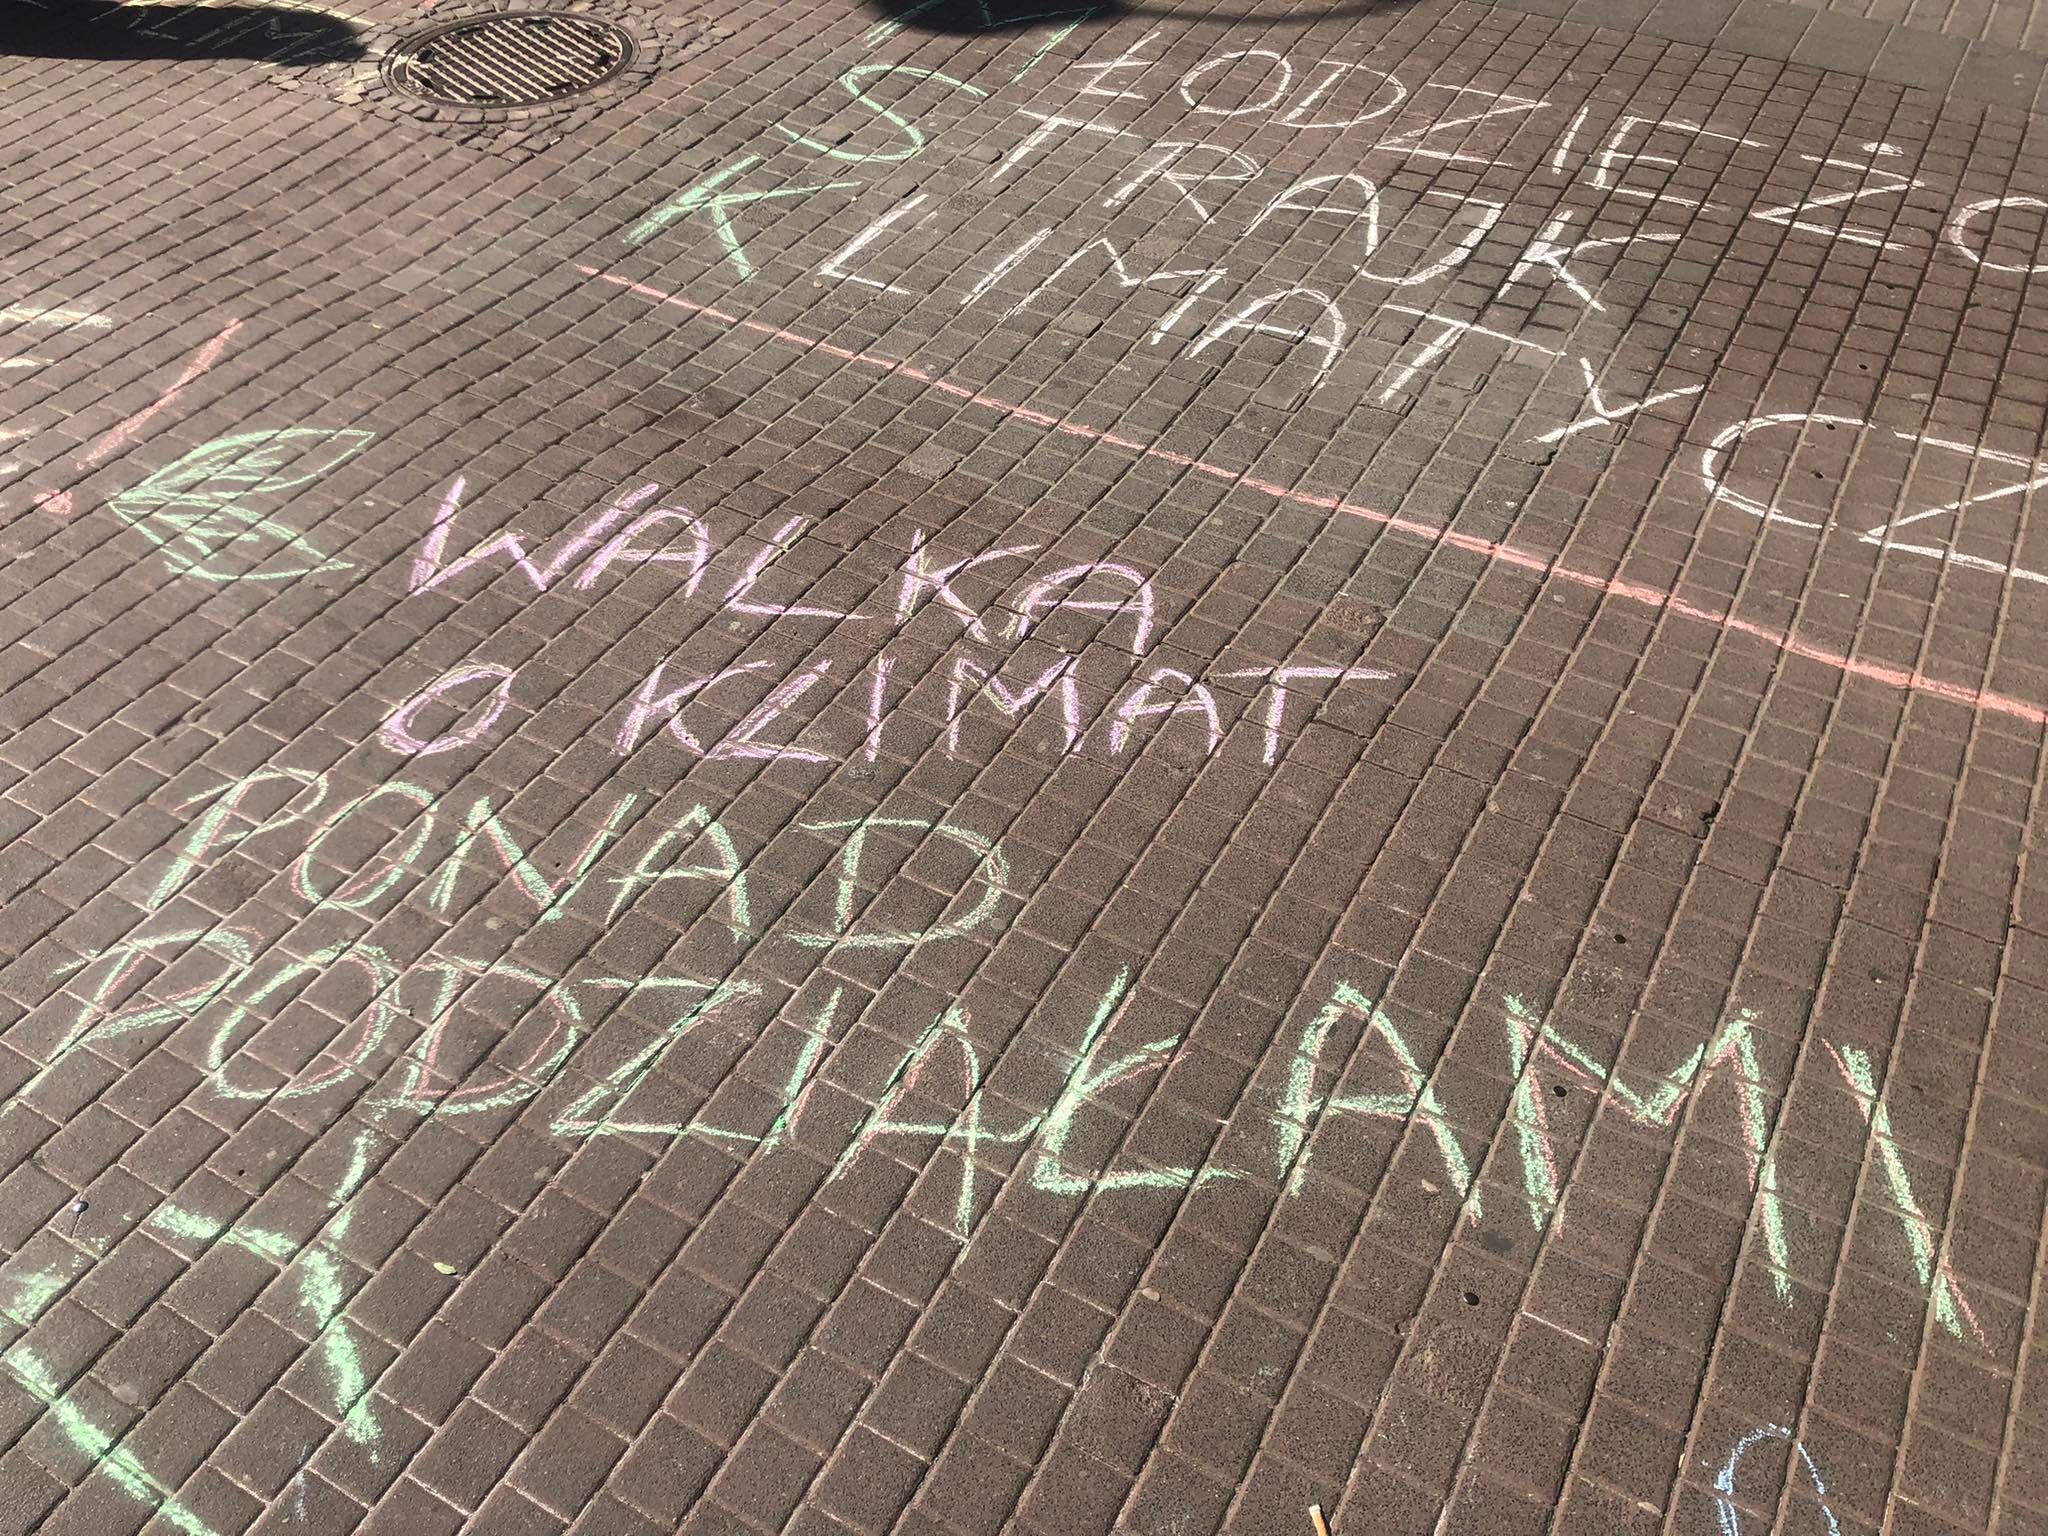 MŁODZIEŻO
STRAJK
KLIMATYCZ
WALKA
O KLIMAT
PONAD
PODZIAŁAMI